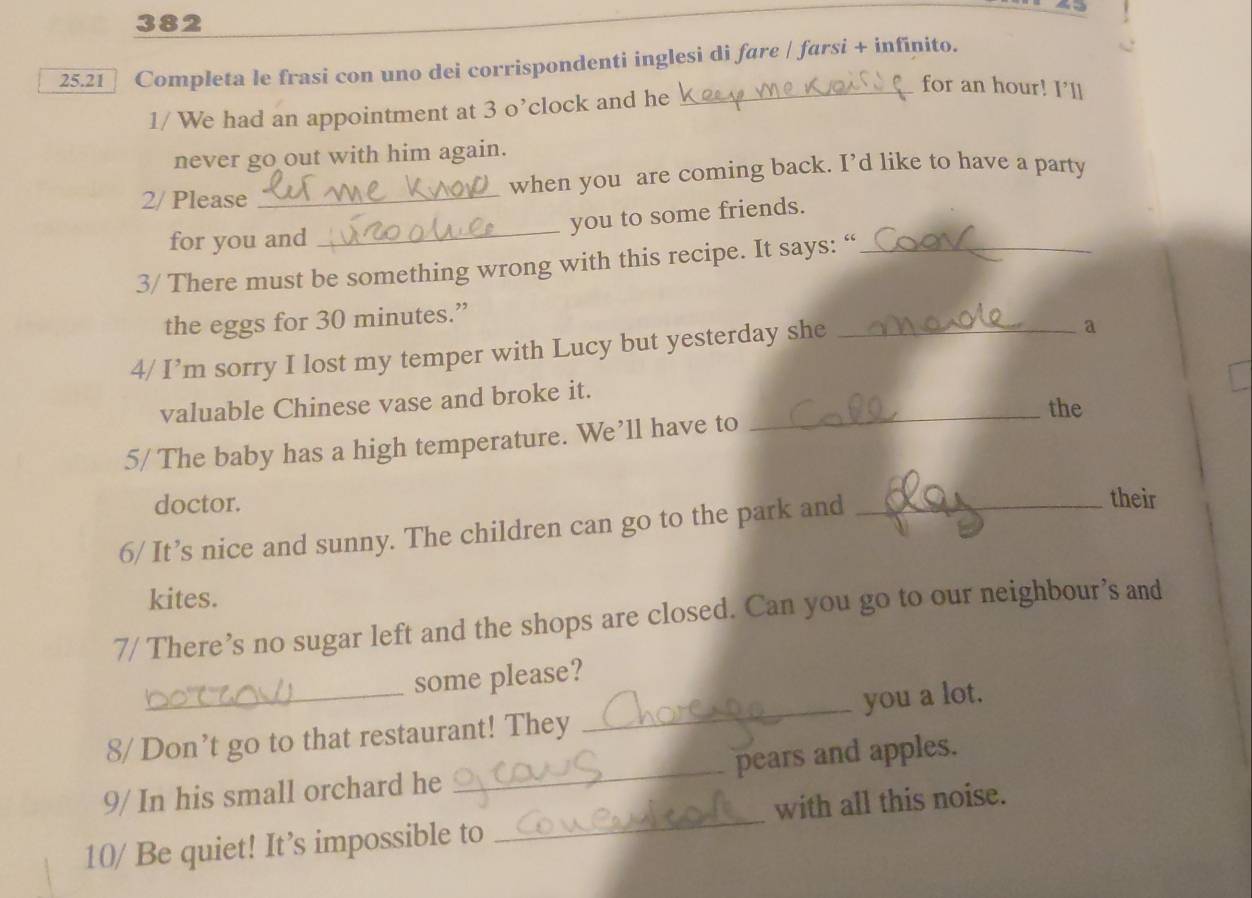 382
25.21 Completa le frasi con uno dei corrispondenti inglesi di fare / farsi + infinito.
1/ We had an appointment at 3 o'clock and he keep me for an hour! I'll
never go out with him again.
2/ Please let me know when you are coming back. I'd like to have a party
for you and you to some friends.
3/ There must be something wrong with this recipe. It says: "
the eggs for 30 minutes."
4/ I'm sorry I lost my temper with Lucy but yesterday she made a
valuable Chinese vase and broke it.
5/ The baby has a high temperature. We'll have to call the
doctor.
6/ It's nice and sunny. The children can go to the park and play their
kites.
7/ There's no sugar left and the shops are closed. Can you go to our neighbour's and
borrow some please?
8/ Don't go to that restaurant! They you a lot.
9/ In his small orchard he pears and apples.
10/ Be quiet! It's impossible to with all this noise.